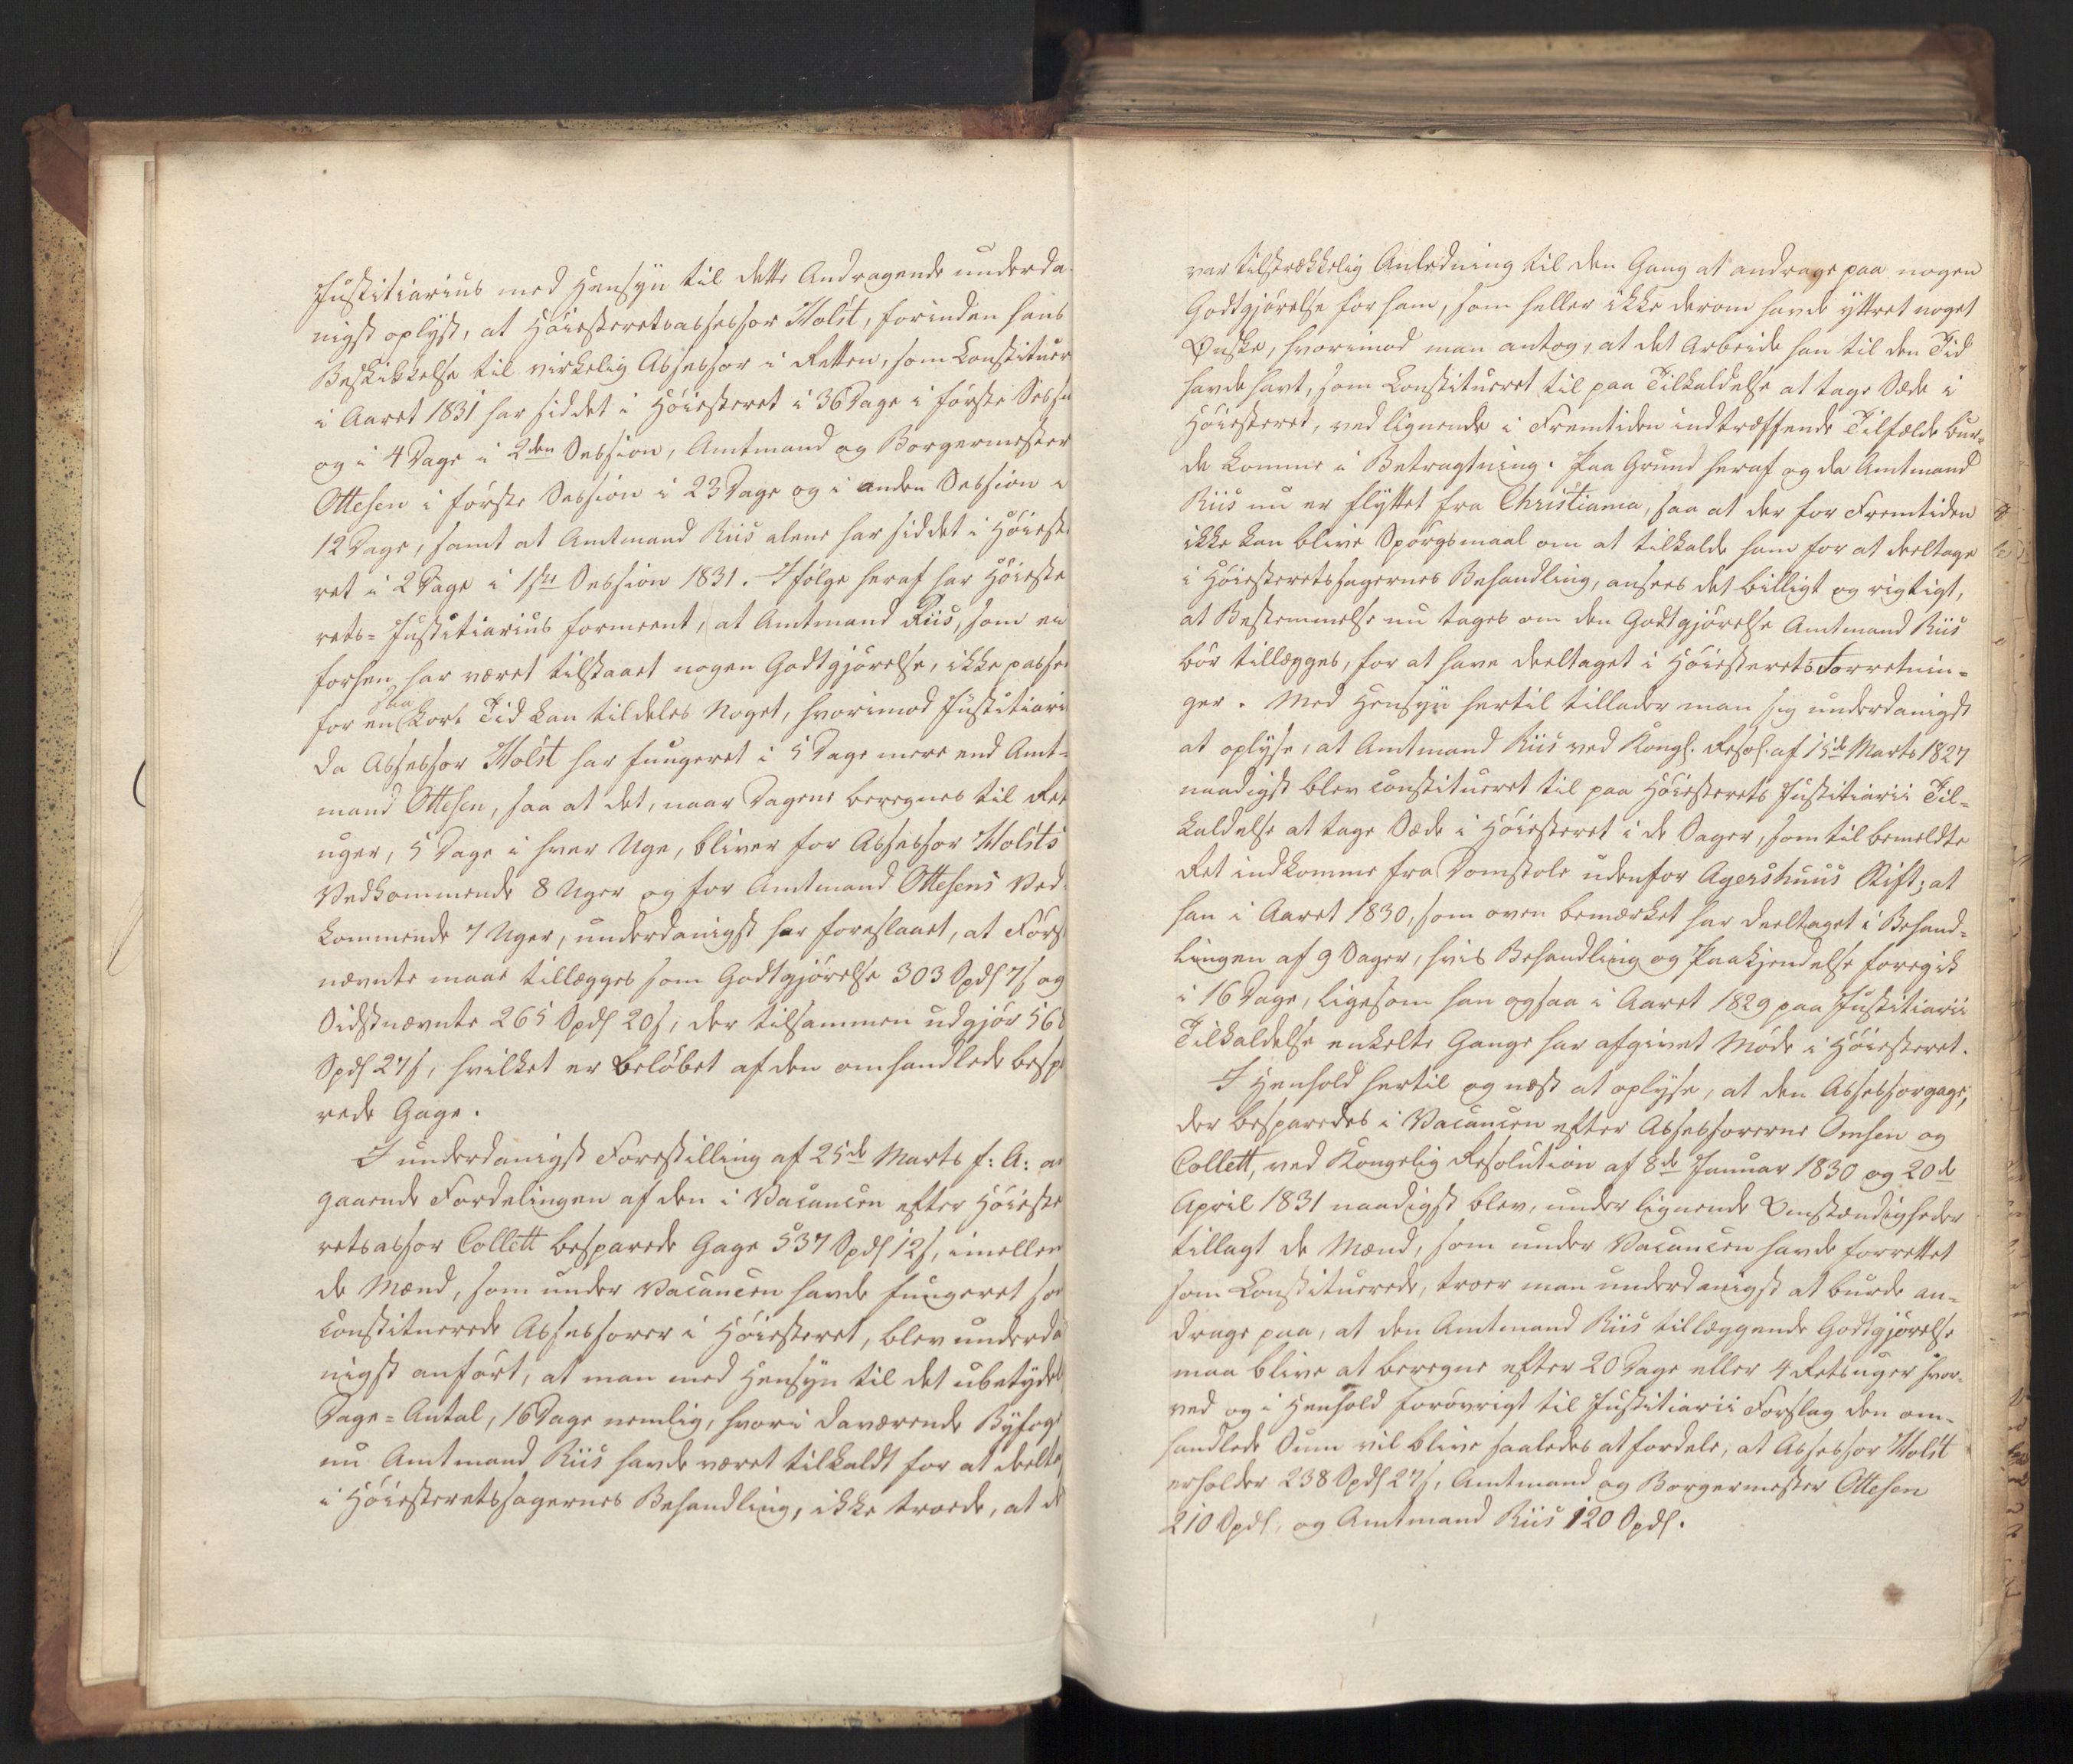 Justitiarius med Hensyn til dette Andragende underda-
nigst oplyst, at Høiesteretsassessor Holst, forinden hans
Beskikkelse til virkelig Assessor i Retten, som Constituer
i Aaret 1831 har siddet i Høiesteret i 36 Dage i første Sess
og i 4 Dage i 2den Session, Amtmand og Borgermester
Ottesen i første Session i 23 Dage og i anden Session i
12 Dage, samt at Amtmand Riis alene har siddet i Høieste
ret i 2 Dage i 1ste Session 1831. Ifølge heraf har Høieste
rets-Justitiarius formeent, at Amtmand Riis, som ei
forhen har været tilstaaet nogen Godtgjørelse, ikke passe
for en saa kort Tid kan tildeles Noget, hvorimod Justitiari
da Assessor Holst har fungeret i 5 Dage mere end Amt-
mand Ottesen, saa at det, naar Dagene beregnes til Ret
uger, 5 Dage i hver Uge, bliver for Assessor Holsts
Vedkommende 8 Uger og for Amtmand Ottesens Ved-
kommende 7 Uger, underdanigst har foreslaaet, at Først
nævnte maae tillægges som Godtgjørelse 303 Spd 7 s og
Sidstnævnte 265 Spd 20 s, der tilsammen udgjør 568
Spd 27 s, hvilket er Beløbet af den omhandlede bespa
rede Gage.
I underdanigst Forestilling af 25de Marts f: A: an
gaaende Fordelingen af den i Vacancen efter Høieste
retsassor Collett besparede Gage 537 Spd 12 s, imellem
de Mænd, som under Vacancen havde fungeret som
constituerede Assessorer i Høiesteret, blev underda
nigst anført, at man med Hensyn til det ubetydel
Dage-Antal, 16 Dage nemlig, hvori daværende Byfoge
nu Amtmand Riis havde været tilkaldt for at deelta
i Høiesteretssagernes Behandling, ikke troede, at d
var tilstrækkelig Anledning til den Gang at andrage paa nogen
Godtgjørelse for ham, som heller ikke derom havde yttret noget
Ønske, hvorimod man antog, at det Arbeide han til den Tid
havde havt, som Constitueret til paa Tilkaldelse at tage Sæde i
Høiesteret, ved lignende i Fremtiden indtræffende Tilfælde bur-
de komme i Betragtning. Paa Grund heraf og da Amtmand
Riis nu er flyttet fra Christiania, saa at der for Fremtiden
ikke kan blive Spørgsmaal om at tilkalde ham for at deeltage
i Høiesteretssagernes Behandling, ansees det billigt og rigtigt,
at Bestemmelse nu tages om den Godtgjørelse Amtmand Riis
bør tillægges, for at have deeltaget i Høiesterets Forretnin-
ger. Med Hensyn hertil tillader man sig underdanigst
at oplyse, at Amtmand Riis ved Kongl. Resol. af 15de Marts 1827
naadigst blev constitueret til paa Høiesterets Justitiarii Til-
kaldelse at tage Sæde i Høiesteret i de Sager, som til bemeldte
Ret indkomme fra Domstole udenfor Agershuus Stift; at
han i Aaret 1830, som oven bemærket har deeltaget i Behand-
lingen af 9 Sager, hvis Behandling og Paakjendelse foregik
i 16 Dage, ligesom han ogsaa i Aaret 1829 paa Justitiarii
Tilkaldelse enkelte Gange har afgivet Møde i Høiesteret.
I Henhold hertil og næst at oplyse, at den Assessorgage,
der besparedes i Vacancen efter Assessorerne Omsen og
Collett, ved Kongelig Resolution af 8de Januar 1830 og 20de
April 1831 naadigst blev, under lignende Omstændigheder
tillagt de Mænd, som under Vacancen havde forrettet
som Constituerede, troer man underdanigst at burde an-
drage paa, at den Amtmand Riis tillæggende Godtgjørelse
maa blive at beregne efter 20 Dage eller 4 Retsuger hvor-
ved og i Henhold forøvrigt til Justitiarii Forslag den om-
handlede Sum vil blive saaledes at fordele, at Assessor Holst
erholder 238 Spd 27 s, Amtmand og Borgermester Ottesen
210 Spd, og Amtmand Riis 120 Spd.